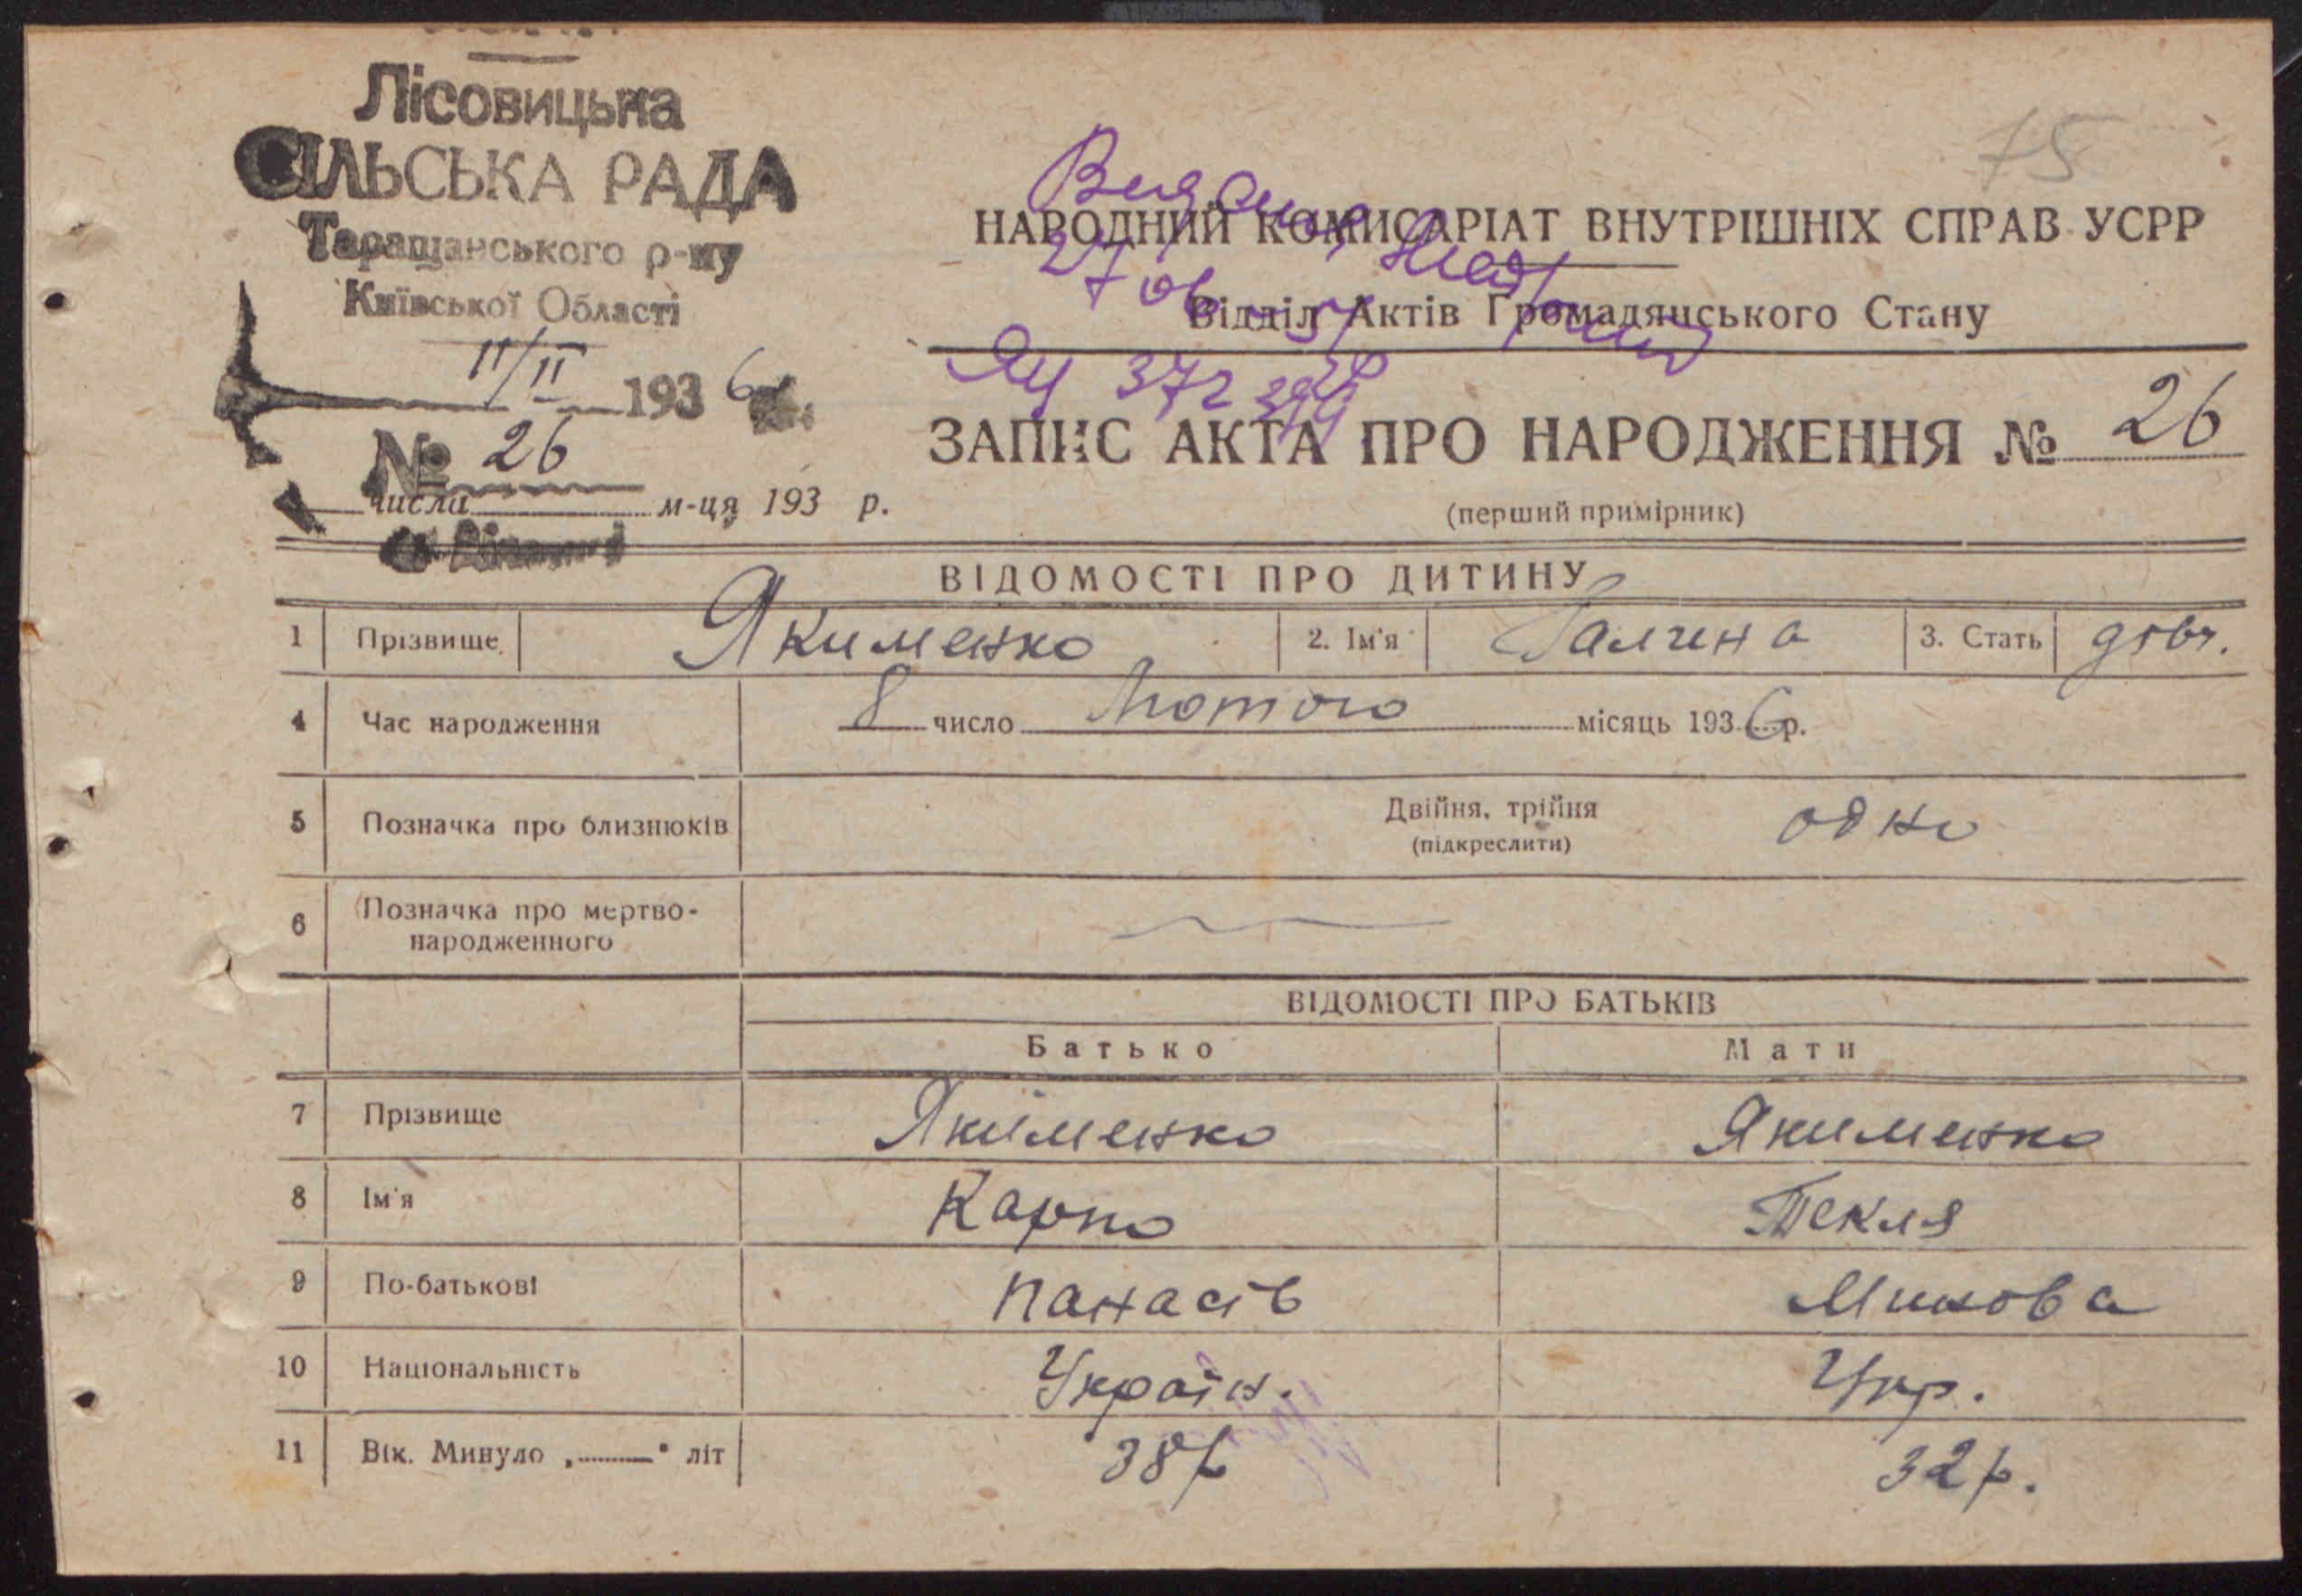 Лісовицька
СІЛЬСЬКА РАДА
Таращанського р-ну
Київської Області
11/II 1936
№ 26
числа м-ця 193 р.
75
НАРОДНИЙ КОМИСАРІАТ ВНУТРІШНІХ СПРАВ УСРР
Відділ Актів Громадянського Стану
ЗАПИС АКТА ПРО НАРОДЖЕННЯ № 26
(перший примірник)
ВІДОМОСТІ ПРО ДИТИНУ
1 Прізвище Якименко 2. Ім'я Галина 3. Стать дівч.
4 Час народження 8 число Лютого місяць 1936 р.
5 Позначка про близнюків Двійня, трійня одно
(підкреслити)
6 Позначка про мертво-
народженного
ВІДОМОСТІ ПРО БАТЬКІВ
Батько Мати
7 Прізвище Якименко Якименко
8 Ім'я Карпо Текля
9 По-батькові Панасів
10 Національність Україн. Укр.
11 Вік. Минуло „ " літ 38 р 32 р.